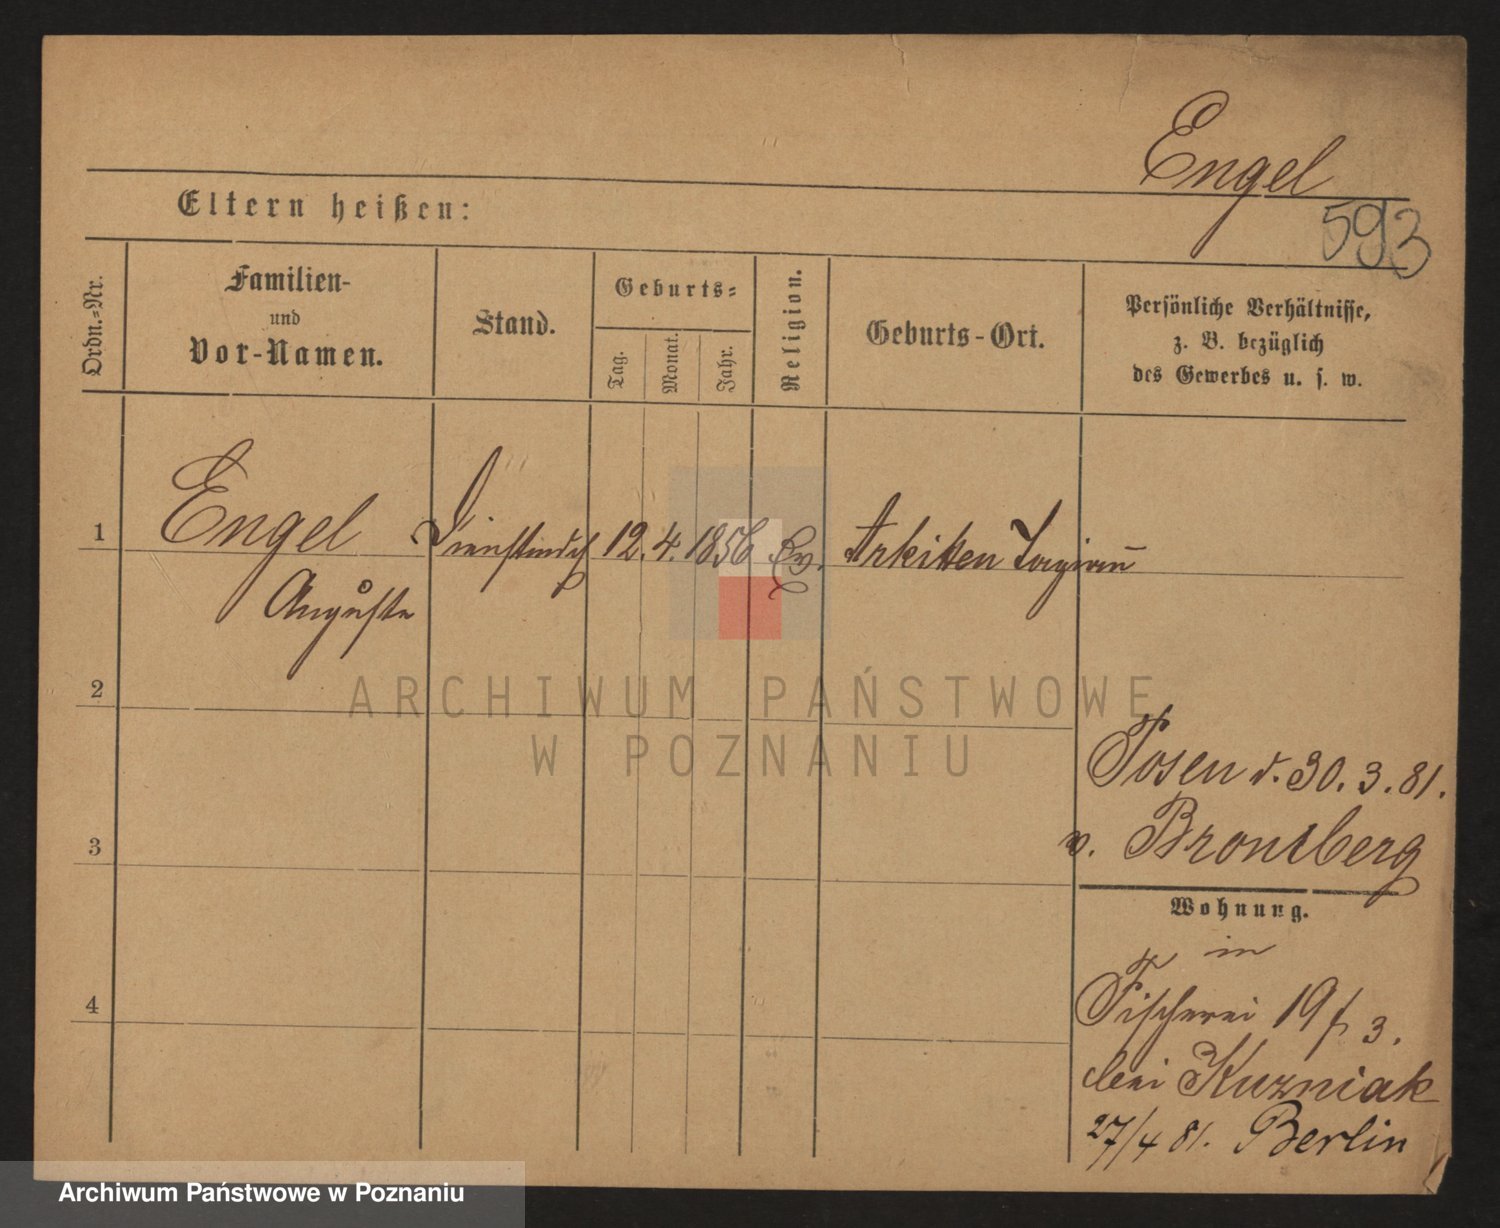 Engel
593
Eltern heißen:
Ordn.-Nr.
Familien-
und
Vor-Namen.
Stand.
Geburts-
Tag.
Monat.
Jahr.
Religion.
Geburts-Ort.
Persönliche Verhältnisse,
z. B. bezüglich
des Gewerbes u. s. w.
1
Engel
Auguste
12. 4. 1856 Ev.
2
3
4
Posen d. 30. 3. 81.
v. Bromberg
Wohnung.
in
Fischerei 19/3.
bei Kuzniak
27/4 81. Berlin
ARCHIWUM PAŃSTWOWE
W POZNANIU
Archiwum Państwowe w Poznaniu